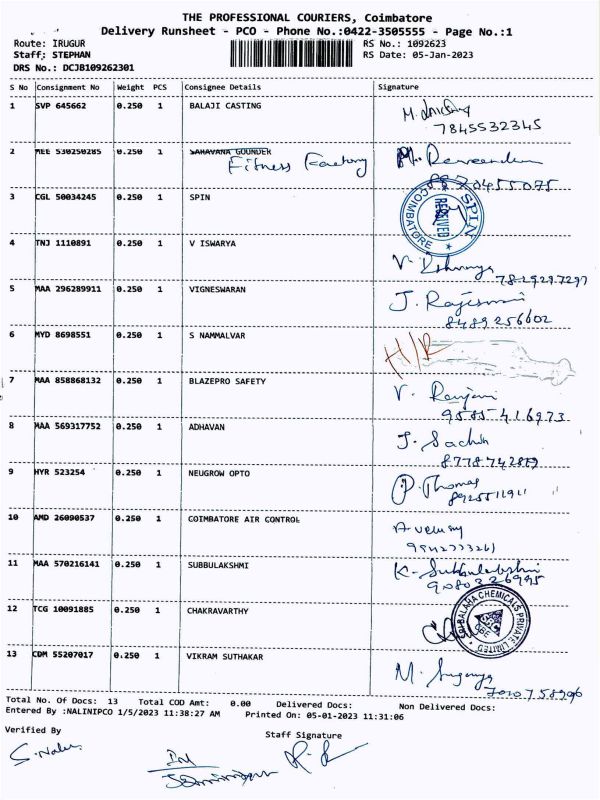 THE PROFESSIONAL COURIERS, Coimbatore
Delivery Runsheet - PCO - Phone No.:0422-3505555 - Page No.:1
Route: IRUGUR RS No.: 1092623
Staff: STEPHAN RS Date: 05-Jan-2023
DRS No.: DCJB109262301
S No Consignment No Weight PCS Consignee Details Signature
1 SVP 645662 0.250 1 BALAJI CASTING M.
7845532345
2 MEE 530250285 0.250 1 SARAVANA GOUNDER
Fitness Factory
3 CGL 50034245 0.250 1 SPIN
SPIN COIMBATORE RECEIVED
4 TNJ 1110891 0.250 1 V ISWARYA V.
7829297297
5 MAA 296289911 0.250 1 VIGNESWARAN J.
8489256602
6 MYD 8698551 0.250 1 S NAMMALVAR H/R
7 MAA 858868132 0.250 1 BLAZEPRO SAFETY V. Ranjani
9585416973
8 MAA 569317752 0.250 1 ADHAVAN J. Sachin
8778742879
9 HYR 523254 0.250 1 NEUGROW OPTO P. Thomas
10 AMD 26090537 0.250 1 COIMBATORE AIR CONTROL
11 MAA 570216141 0.250 1 SUBBULAKSHMI K. Subbulakshmi
9080326995
12 TCG 10091885 0.250 1 CHAKRAVARTHY
SRI BALAJI CHEMICALS PRIVATE LIMITED
13 CDM 55207017 0.250 1 VIKRAM SUTHAKAR M. Suganya
Total No. Of Docs: 13 Total COD Amt: 0.00 Delivered Docs: Non Delivered Docs:
Entered By :NALINIPCO 1/5/2023 11:38:27 AM Printed On: 05-01-2023 11:31:06
Verified By Staff Signature